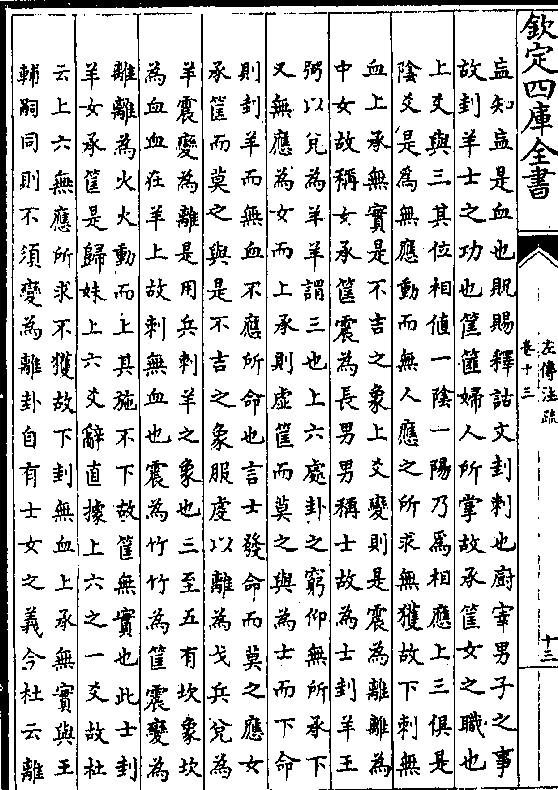 欽定四庫全書
左傳注疏
卷十三
十三
衁知衁是血也貺賜釋詁文刲刺也廚宰男子之事
故刲羊士之功也筐篚婦人所掌故承筐女之職也
上爻與三其位相值一陰一陽乃爲相應上三俱是
陰爻是爲無應動而無人應之所求無獲故下刺無
血上承無實是不吉之象上爻變則是震為離離為
中女故稱女承筐震為長男男稱士故為士刲羊王
弼以兌為羊羊謂三也上六處卦之窮仰無所承下
又無應為女而上承則虛筐而莫之與為士而下命
則刲羊而無血不應所命也言士發命而莫之應女
承筐而莫之與是不吉之象服虔以離為戈兵兌為
羊震變為離是用兵刺羊之象也三至五有坎象坎
為血血在羊上故刺無血也震為竹竹為筐震變為
離離為火火動而上其施不下故筐無實也此士刲
羊女承筐是歸妹上六爻辭直據上六之一爻故杜
云上六無應所求不獲故下刲無血上承無實與王
輔嗣同則不須變為離卦自有士女之義今杜云離